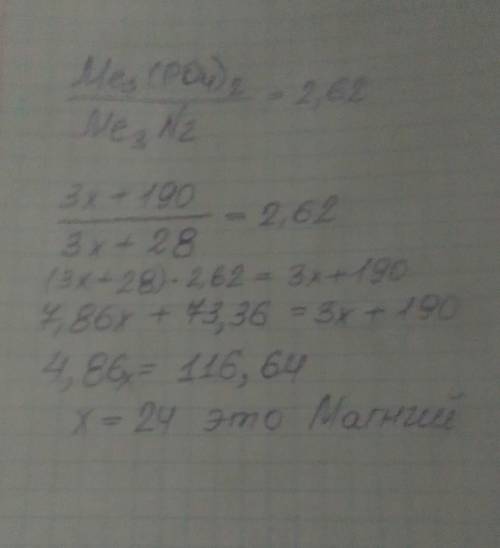 Me₃(PO₄)₂ / Me₃N₂ = 2,62
3x + 190 / 3x + 28 = 2,62
(3x + 28) · 2,62 = 3x + 190
7,86x + 73,36 = 3x + 190
4,86x = 116,64
x = 24 это Магний